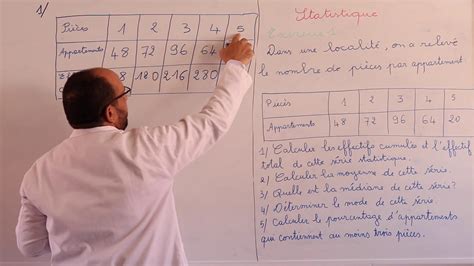 1/
Pièces 1 2 3 4 5
Appartements 48 72 96 64
120 216 280
Statistique
Exercice
Dans une localité, on a relevé
le nombre de pièces par appartement
Pièces 1 2 3 4 5
Appartements 48 72 96 64 20
1/ Calculer les effectifs cumulés et l'effectif
total de cette série statistique.
2/ Calculer la moyenne de cette série.
3/ Quelle est la médiane de cette série?
4/ Déterminer le mode de cette série.
5/ Calculer le pourcentage d'appartements
qui contiennent au moins trois pièces.